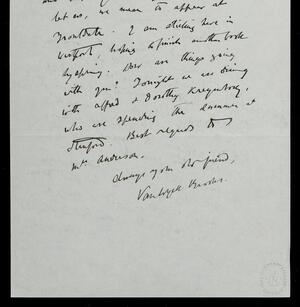 let us, we mean to appear at
I am sticking here in
Westport, hoping to finish another book
by spring. How are things going
with you? Tonight we are dining
with Alfred & Dorothy Kreymborg,
who are spending the summer at
Stamford. Best regards to
Mrs Anderson.
Always your old friend,
Van Wyck Brooks.